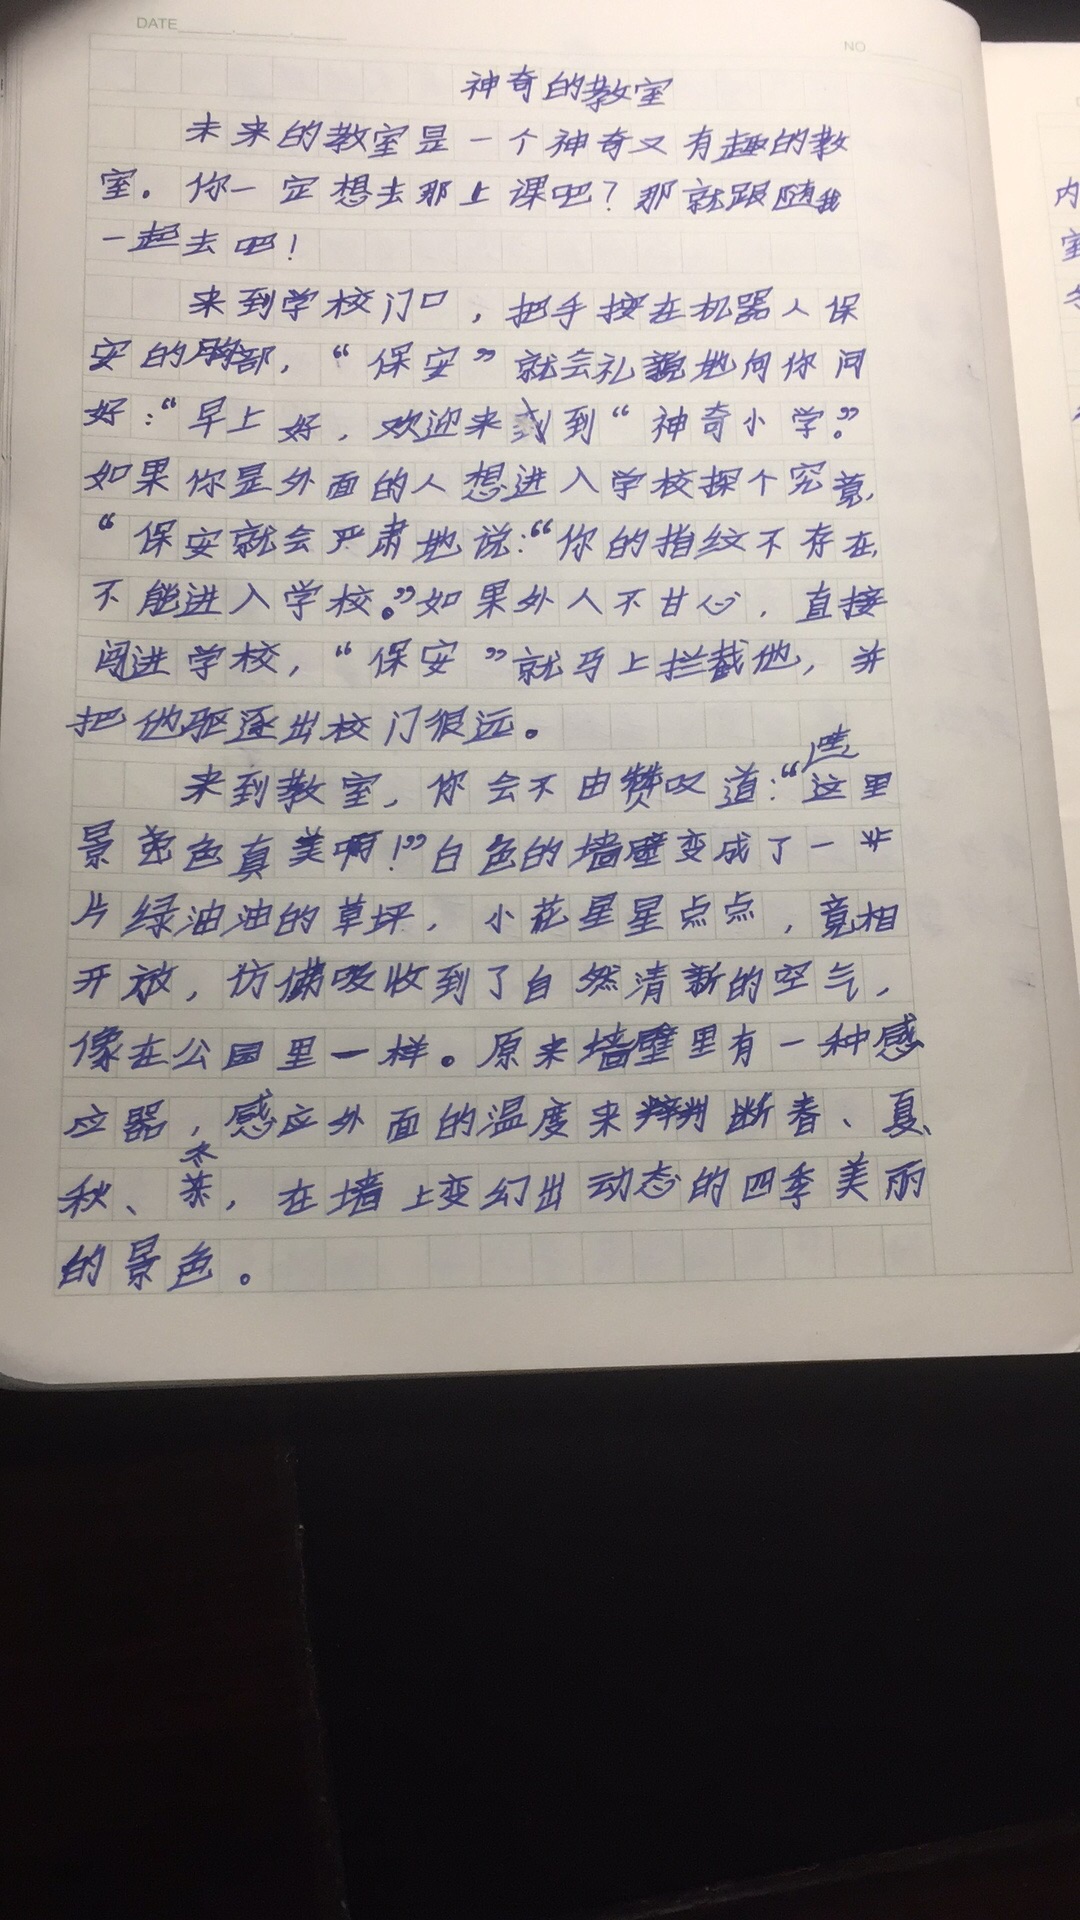 DATE
NO
神奇的教室
未来的教室是一个神奇又有趣的教
室。你一定想去那上课吧？那就跟随我
一起去吧！
来到学校门口，把手按在机器人保
安的胸部，“保安”就会礼貌地向你问
好：“早上好，欢迎来到“神奇小学。”
如果你是外面的人想进入学校探个究竟，
“保安就会严肃地说：“你的指纹不存在，
不能进入学校。”如果外人不甘心，直接
闯进学校，“保安”就马上拦截他，并
把他驱逐出校门很远。
来到教室，你会不由赞叹道：“哇，这里
景色真美啊！”白色的墙壁变成了一
片绿油油的草坪，小花星星点点，竟相
开放，仿佛吸收到了自然清新的空气，
像在公园里一样。原来墙壁里有一种感
应器，感应外面的温度来判断春、夏、
秋、冬，在墙上变幻出动态的四季美丽
的景色。
内
室